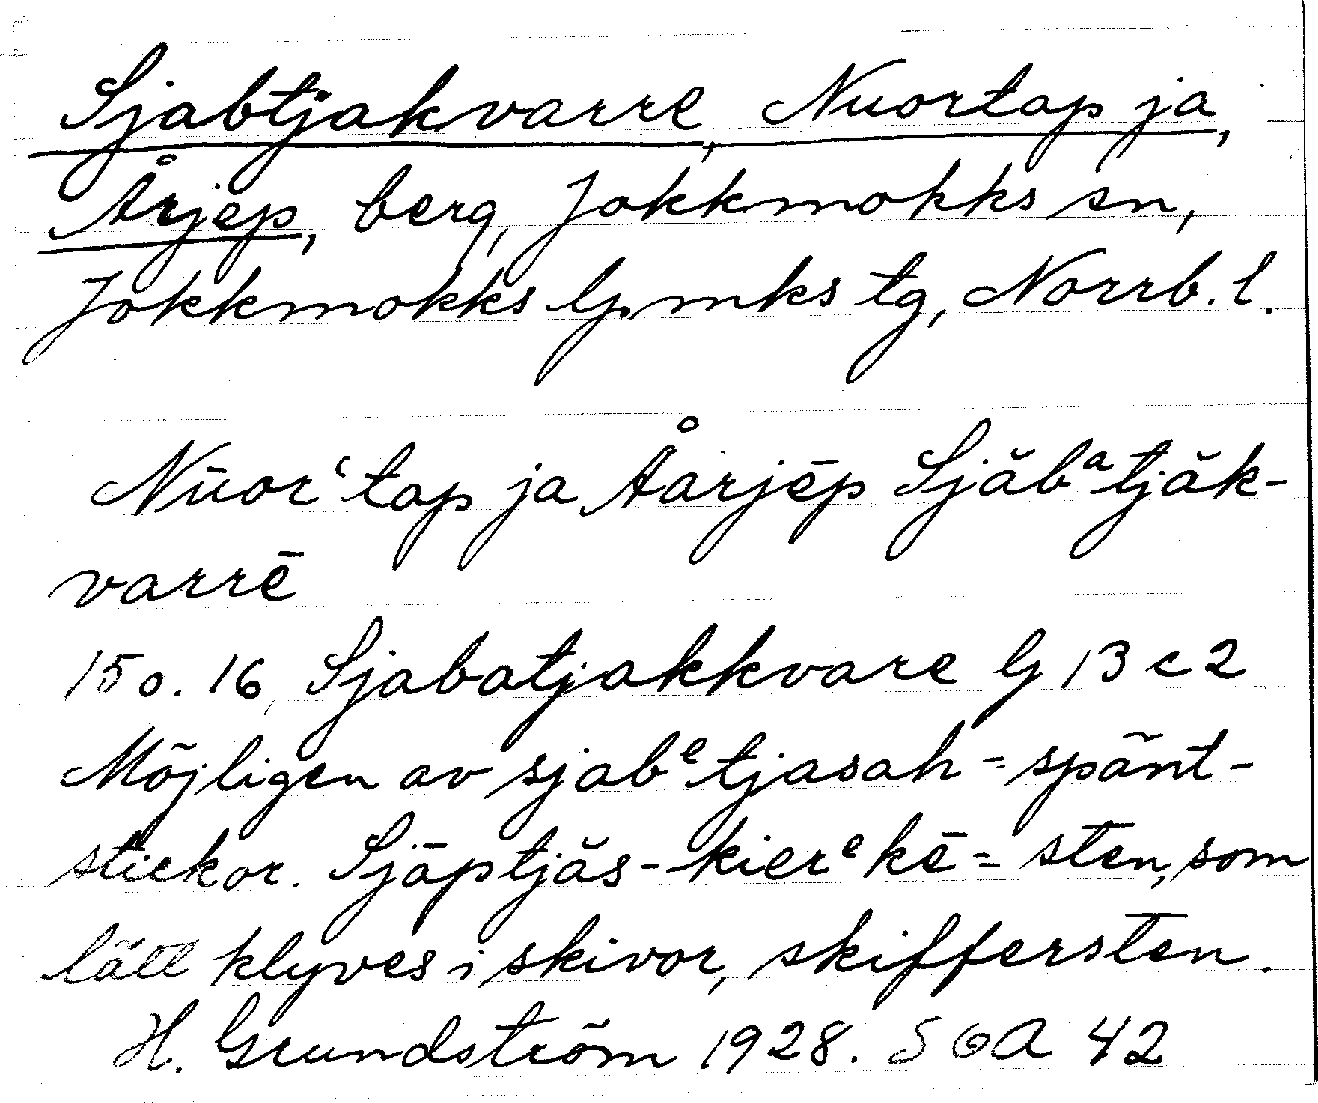 Sjabtjakvarre, Nuortap ja,
Årjep, berg, Jokkmokks sn,
Jokkmokks lpmks tg, Norrb. l.
Nūorʻtap ja Åarjēp Sjăbᵃtjăk-
varrē
15 o. 16, Sjabatjakkvare lj 13 c 2
Möjligen av sjabᵉtjasah = spänt-
stickor. Sjāptjăs-kierᵉkē = sten, som
lätt klyves i skivor, skiffersten.
H. Grundström 1928. SOA 42